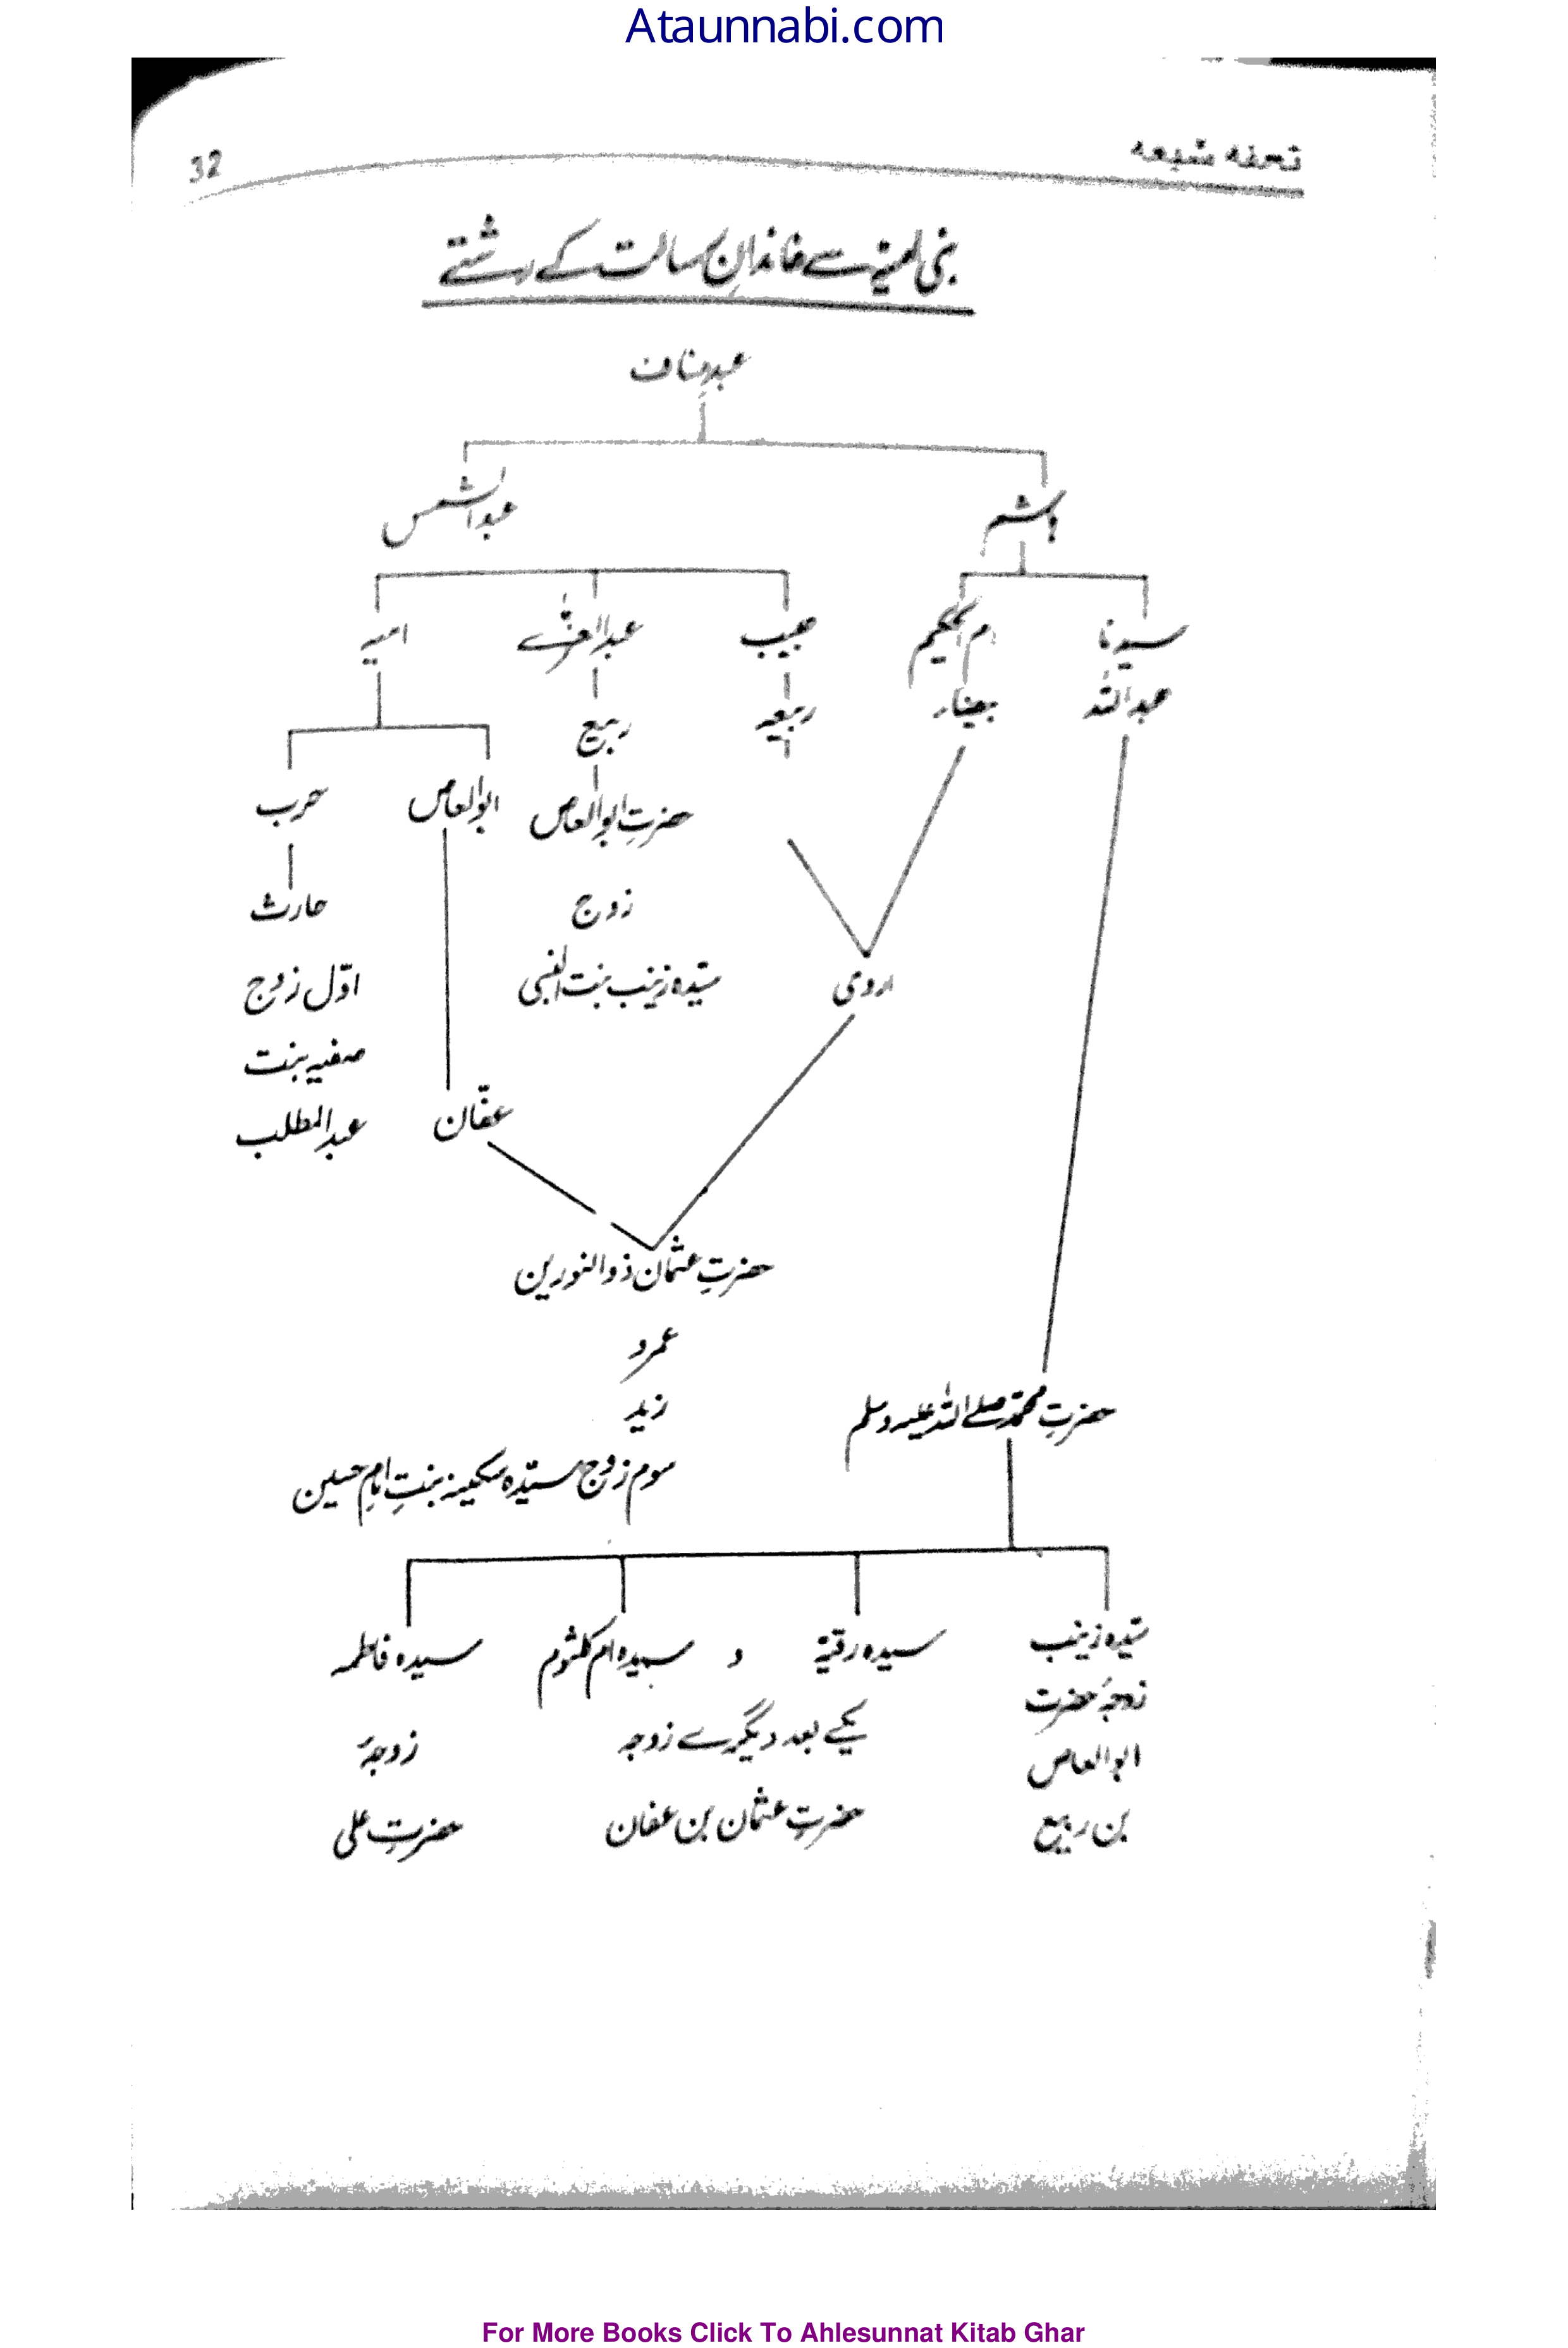 Ataunnabi.com
تحفہ شیعہ
32
بنی امیہ سے خاندانِ رسالت کے رشتے
عبدِ مناف
ہاشم
عبدالشمس
سیدنا عبداللہ
ام الحکیم بیضاء
حبیب
ربیعہ
عبدالعزّٰے
ربیع
حضرتِ ابوالعاص
زوج
سیّدہ زینب بنت النبی
امیہ
ابوالعاص
حرب
حارث
اوّل زوج
صفیہ بنت
عبدالمطلب
اروی
عفّان
حضرتِ عثمان ذوالنورین
عمرو
زید
سوم زوج سیّدہ سکینہ بنتِ امام حسین
حضرتِ محمّد صلے اللہ علیہ وسلم
سیّدہ زینب
زوجۂ حضرت
ابوالعاص
بن ربیع
سیدہ رقیّہ و سیدہ ام کلثوم
یکے بعد دیگرے زوجہ
حضرتِ عثمان بن عفان
سیدہ فاطمہ
زوجۂ
حضرتِ علی
For More Books Click To Ahlesunnat Kitab Ghar